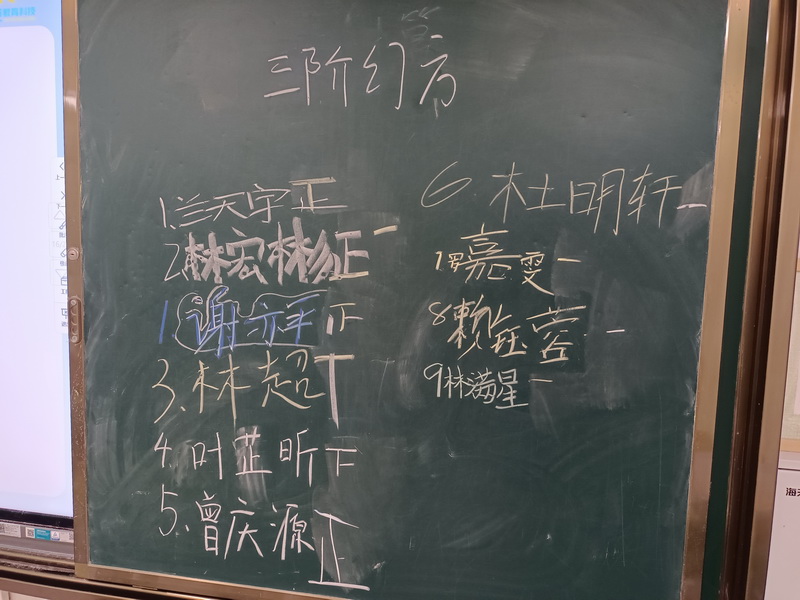 三阶幻方
1.兰天宇 正
2.林宏杨 正一
1 谢亦平 正
3.林超 丅
4.叶芷昕 下
5.曾庆源 正
6.杜明轩 一
嘉雯 一
8赖钰蓉 一
9林满星 一